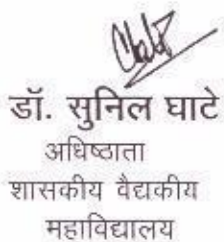 डॉ. सुनिल घाटे
अधिष्ठाता
शासकीय वैद्यकीय
महाविद्यालय